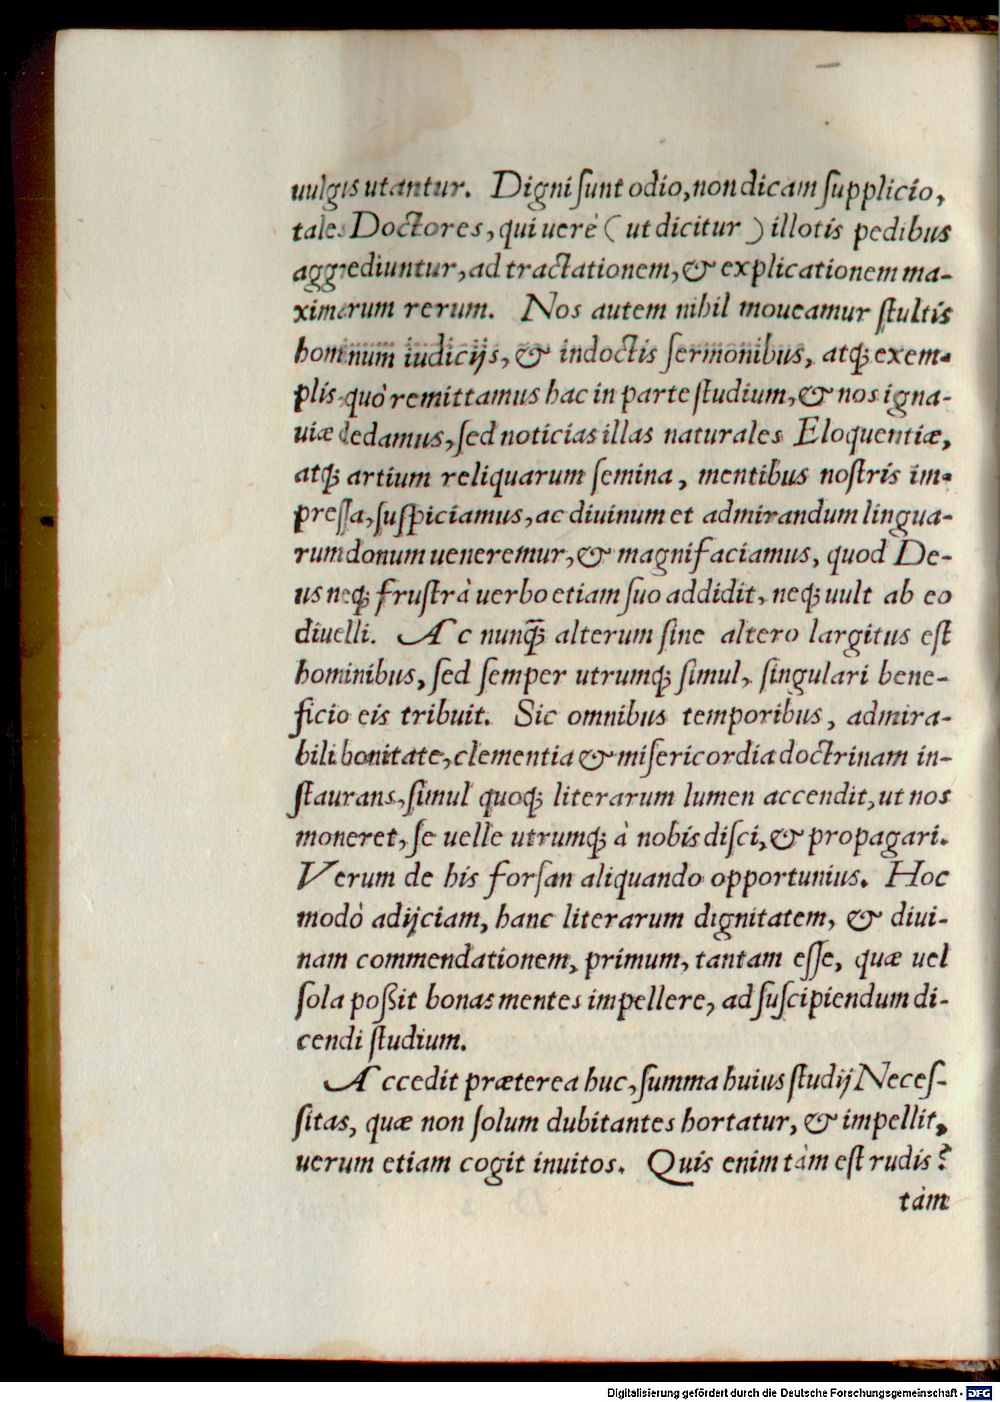 uulgis utantur. Digni ſunt odio, non dicam ſupplicio,
tales Doctores, qui uerè ( ut dicitur ) illotis pedibus
aggrediuntur, ad tractationem, & explicationem ma-
ximarum rerum. Nos autem nihil moueamur ſtultis
hominum iudicijs, & indoctis ſermonibus, atq; exem-
plis, quò remittamus hac in parte ſtudium, & nos igna-
uiæ dedamus, ſed noticias illas naturales Eloquentiæ,
atq; artium reliquarum ſemina, mentibus noſtris im-
preſſa, ſuſpiciamus, ac diuinum et admirandum lingua-
rum donum ueneremur, & magni faciamus, quod De-
us neq; fruſtrà uerbo etiam ſuo addidit, neq; uult ab eo
diuelli. Ac nunq̃ alterum ſine altero largitus eſt
hominibus, ſed ſemper utrumq; ſimul, ſingulari bene-
ficio eis tribuit. Sic omnibus temporibus, admira-
bili bonitate, clementia & miſericordia doctrinam in-
ſtaurans, ſimul quoq; literarum lumen accendit, ut nos
moneret, ſe uelle utrumq; à nobis diſci, & propagari.
Verum de his forſan aliquando opportunius. Hoc
modò adijciam, hanc literarum dignitatem, & diui-
nam commendationem, primum, tantam eſſe, quæ uel
ſola poßit bonas mentes impellere, ad ſuſcipiendum di-
cendi ſtudium.
Accedit præterea huc, ſumma huius ſtudij Neceſ-
ſitas, quæ non ſolum dubitantes hortatur, & impellit,
uerum etiam cogit inuitos. Quis enim tàm eſt rudis?
tàm
Digitalisierung gefördert durch die Deutsche Forschungsgemeinschaft - DFG